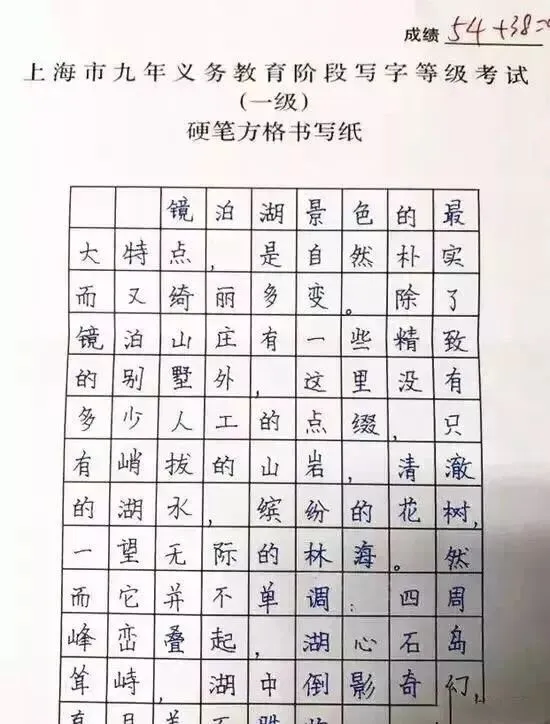 成绩 54+38=
上海市九年义务教育阶段写字等级考试
(一级)
硬笔方格书写纸
镜泊湖景色的最
大特点，是自然朴实
而又绮丽多变。除了
镜泊山庄有一些精致
的别墅外，这里没有
多少人工的点缀，只
有峭拔的山岩，清澈
的湖水，缤纷的花树，
一望无际的林海。然
而它并不单调：四周
峰峦叠起，湖心石岛
耸峙，湖中倒影奇幻，